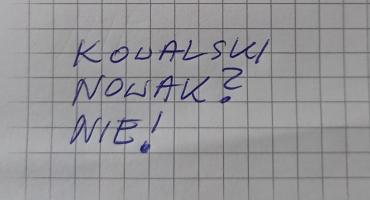 KOWALSKI
NOWAK?
NIE!